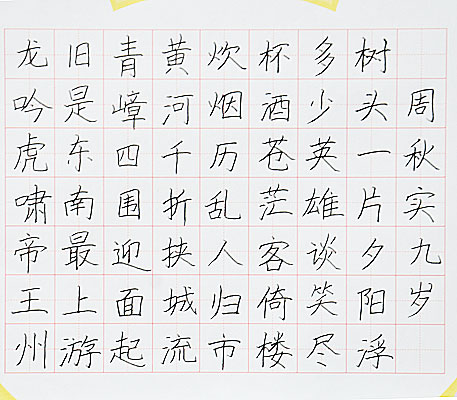 龙吟虎啸帝王州
旧是东南最上游
青嶂四围迎面起
黄河千折挟城流
炊烟历乱人归市
杯酒苍茫客倚楼
多少英雄谈笑尽
树头一片夕阳浮
周秋实九岁